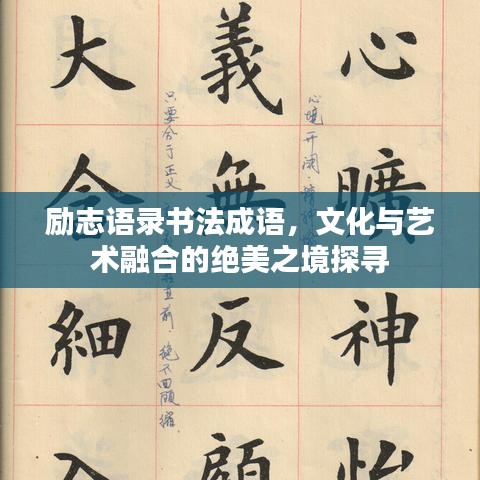 励志语录书法成语，文化与艺
术融合的绝美之境探寻
心曠神怡
心境开阔
義無反顧
只要合于正义
直前，绝不回顾
大含細入